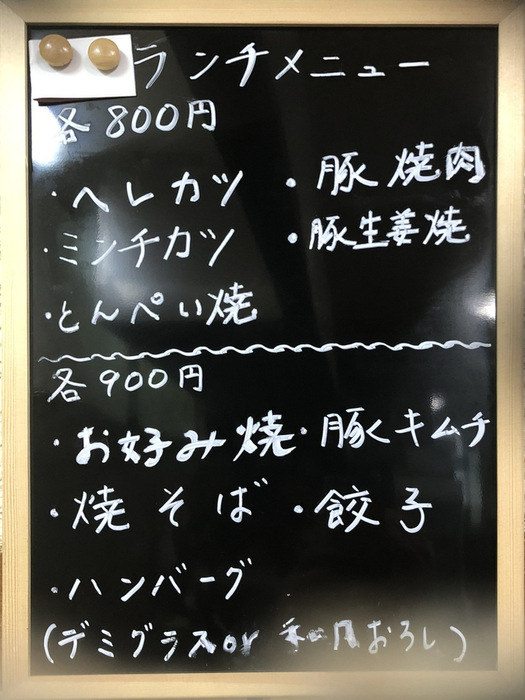 ランチメニュー
各800円
・ヘレカツ ・豚焼肉
・ミンチカツ ・豚生姜焼
・とんぺい焼
各900円
・お好み焼 ・豚キムチ
・焼そば ・餃子
・ハンバーグ
(デミグラスor和風おろし)